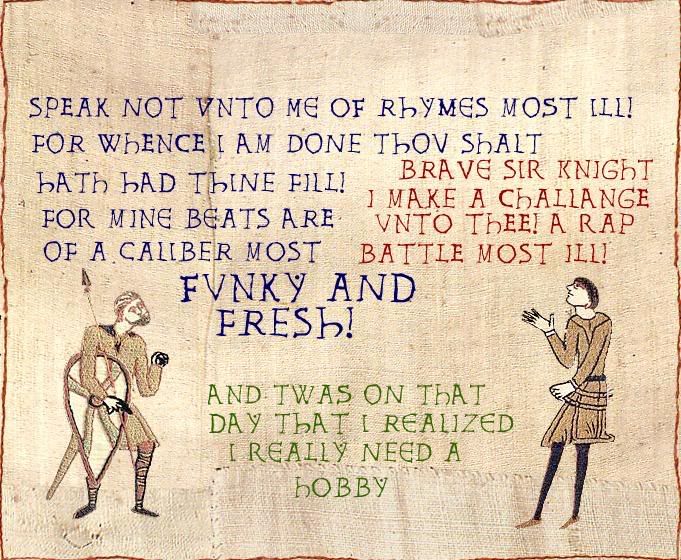 SPEAK NOT VNTO ME OF RhYMES MOST ILL!
FOR WhENCE I AM DONE ThOV ShALT
hATh hAD ThINE FILL!
FOR MINE BEATS ARE
OF A CALIBER MOST
FVNKY AND
FRESh!
BRAVE SIR KNIGhT
I MAKE A ChALLANGE
VNTO ThEE! A RAP
BATTLE MOST ILL!
AND TWAS ON ThAT
DAY ThAT I REALIZED
I REALLY NEED A
hOBBY